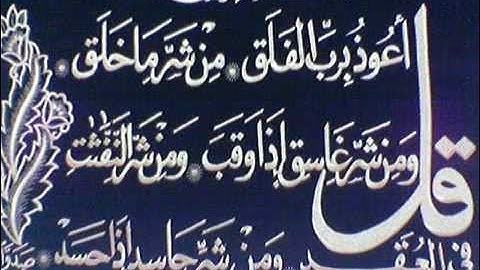 قل أعوذ برب الفلق من شر ما خلق
ومن شر غاسق إذا وقب ومن شر النفثت
في العقد ومن شر حاسد إذا حسد